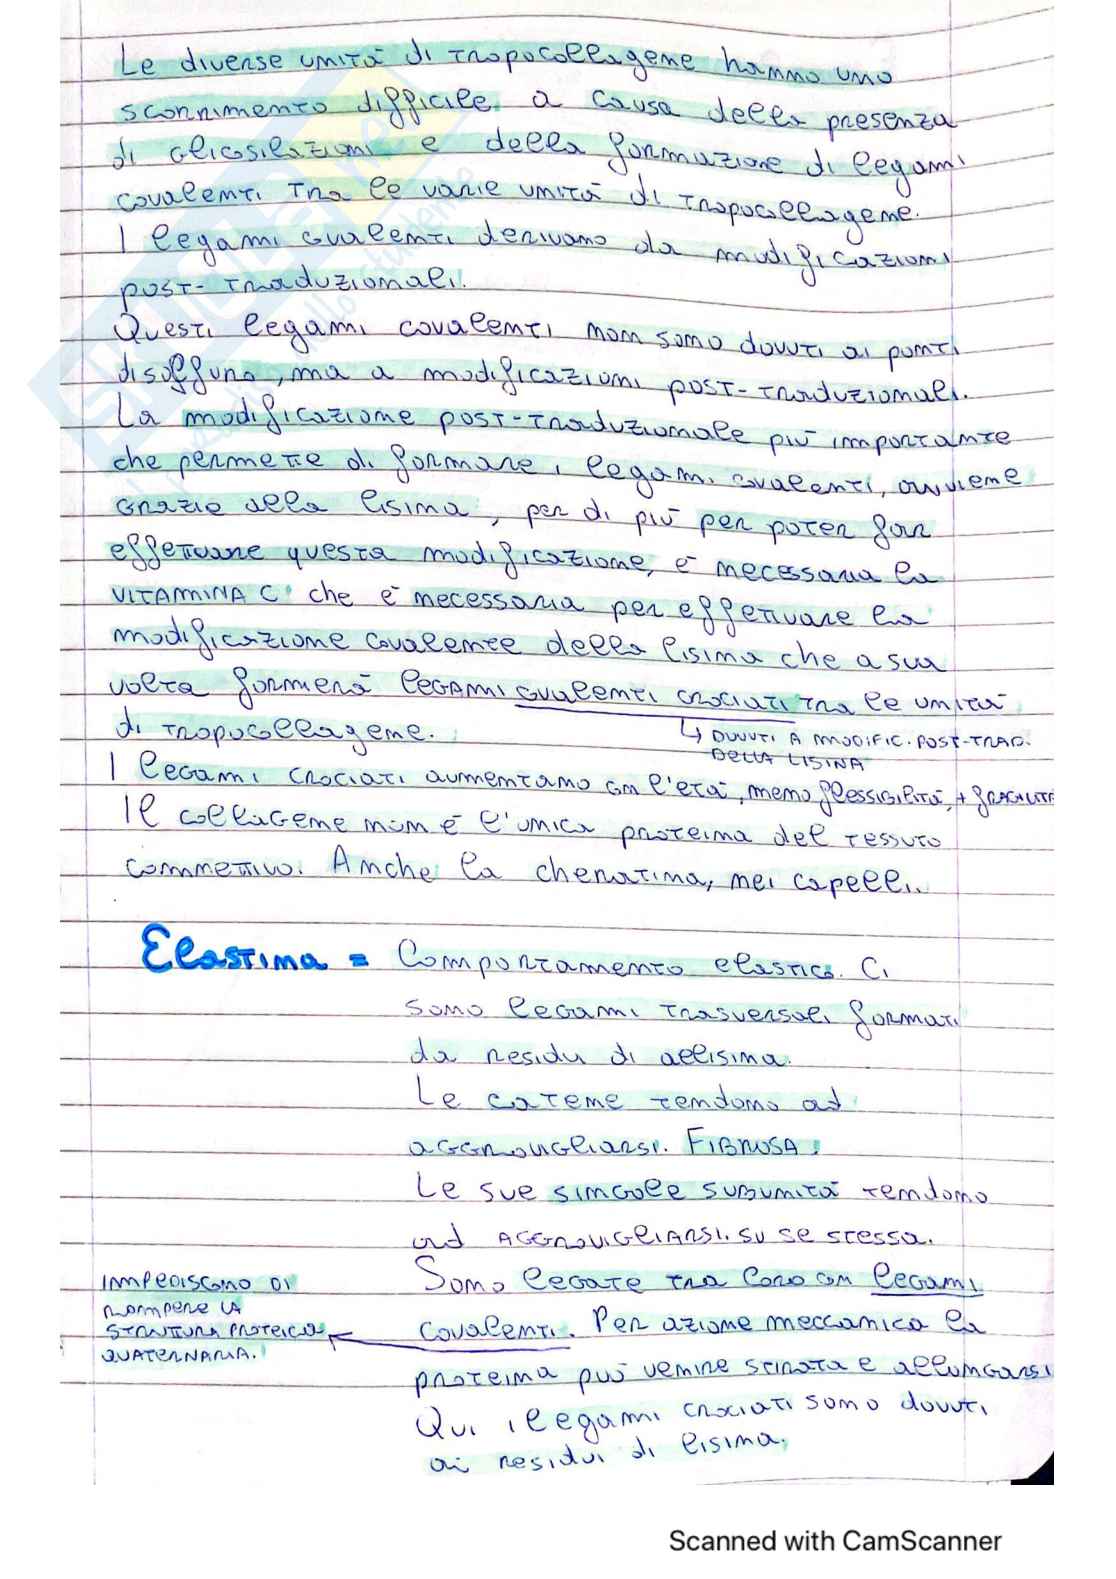 Le diverse unità di tropocollagene hanno uno
scorrimento difficile a causa della presenza
di glicosilazioni e della formazione di legami
covalenti tra le varie unità di tropocollagene.
I legami covalenti derivano da modificazioni
post-traduzionali.
Questi legami covalenti non sono dovuti ai ponti
disolfuro, ma a modificazioni post-traduzionali.
La modificazione post-traduzionale più importante
che permette di formare i legami covalenti, avviene
grazie alla lisina, per di più per poter far
effettuare questa modificazione, è necessaria la
VITAMINA C che è necessaria per effettuare la
modificazione covalente della lisina che a sua
volta formerà legami covalenti crociati tra le unità
di tropocollagene.
↳ DOVUTI A MODIFIC. POST-TRAD.
DELLA LISINA
I legami crociati aumentano con l'età, meno flessibilità, + fragilità
Il collagene non è l'unica proteina del tessuto
connettivo. Anche la cheratina, nei capelli.
Elastina = Comportamento elastico. Ci
sono legami trasversali formati
da residui di allisina.
Le catene tendono ad
aggrovigliarsi. FIBROSA.
Le sue singole subunità tendono
ad AGGROVIGLIARSI. su se stessa.
Sono legate tra loro con legami
covalenti. Per azione meccanica la
proteina può venire stirata e allungarsi
Qui i legami crociati sono dovuti
ai residui di lisina.
IMPEDISCONO DI
rompere la
STRUTTURA PROTEICA
QUATERNARIA.
Scanned with CamScanner